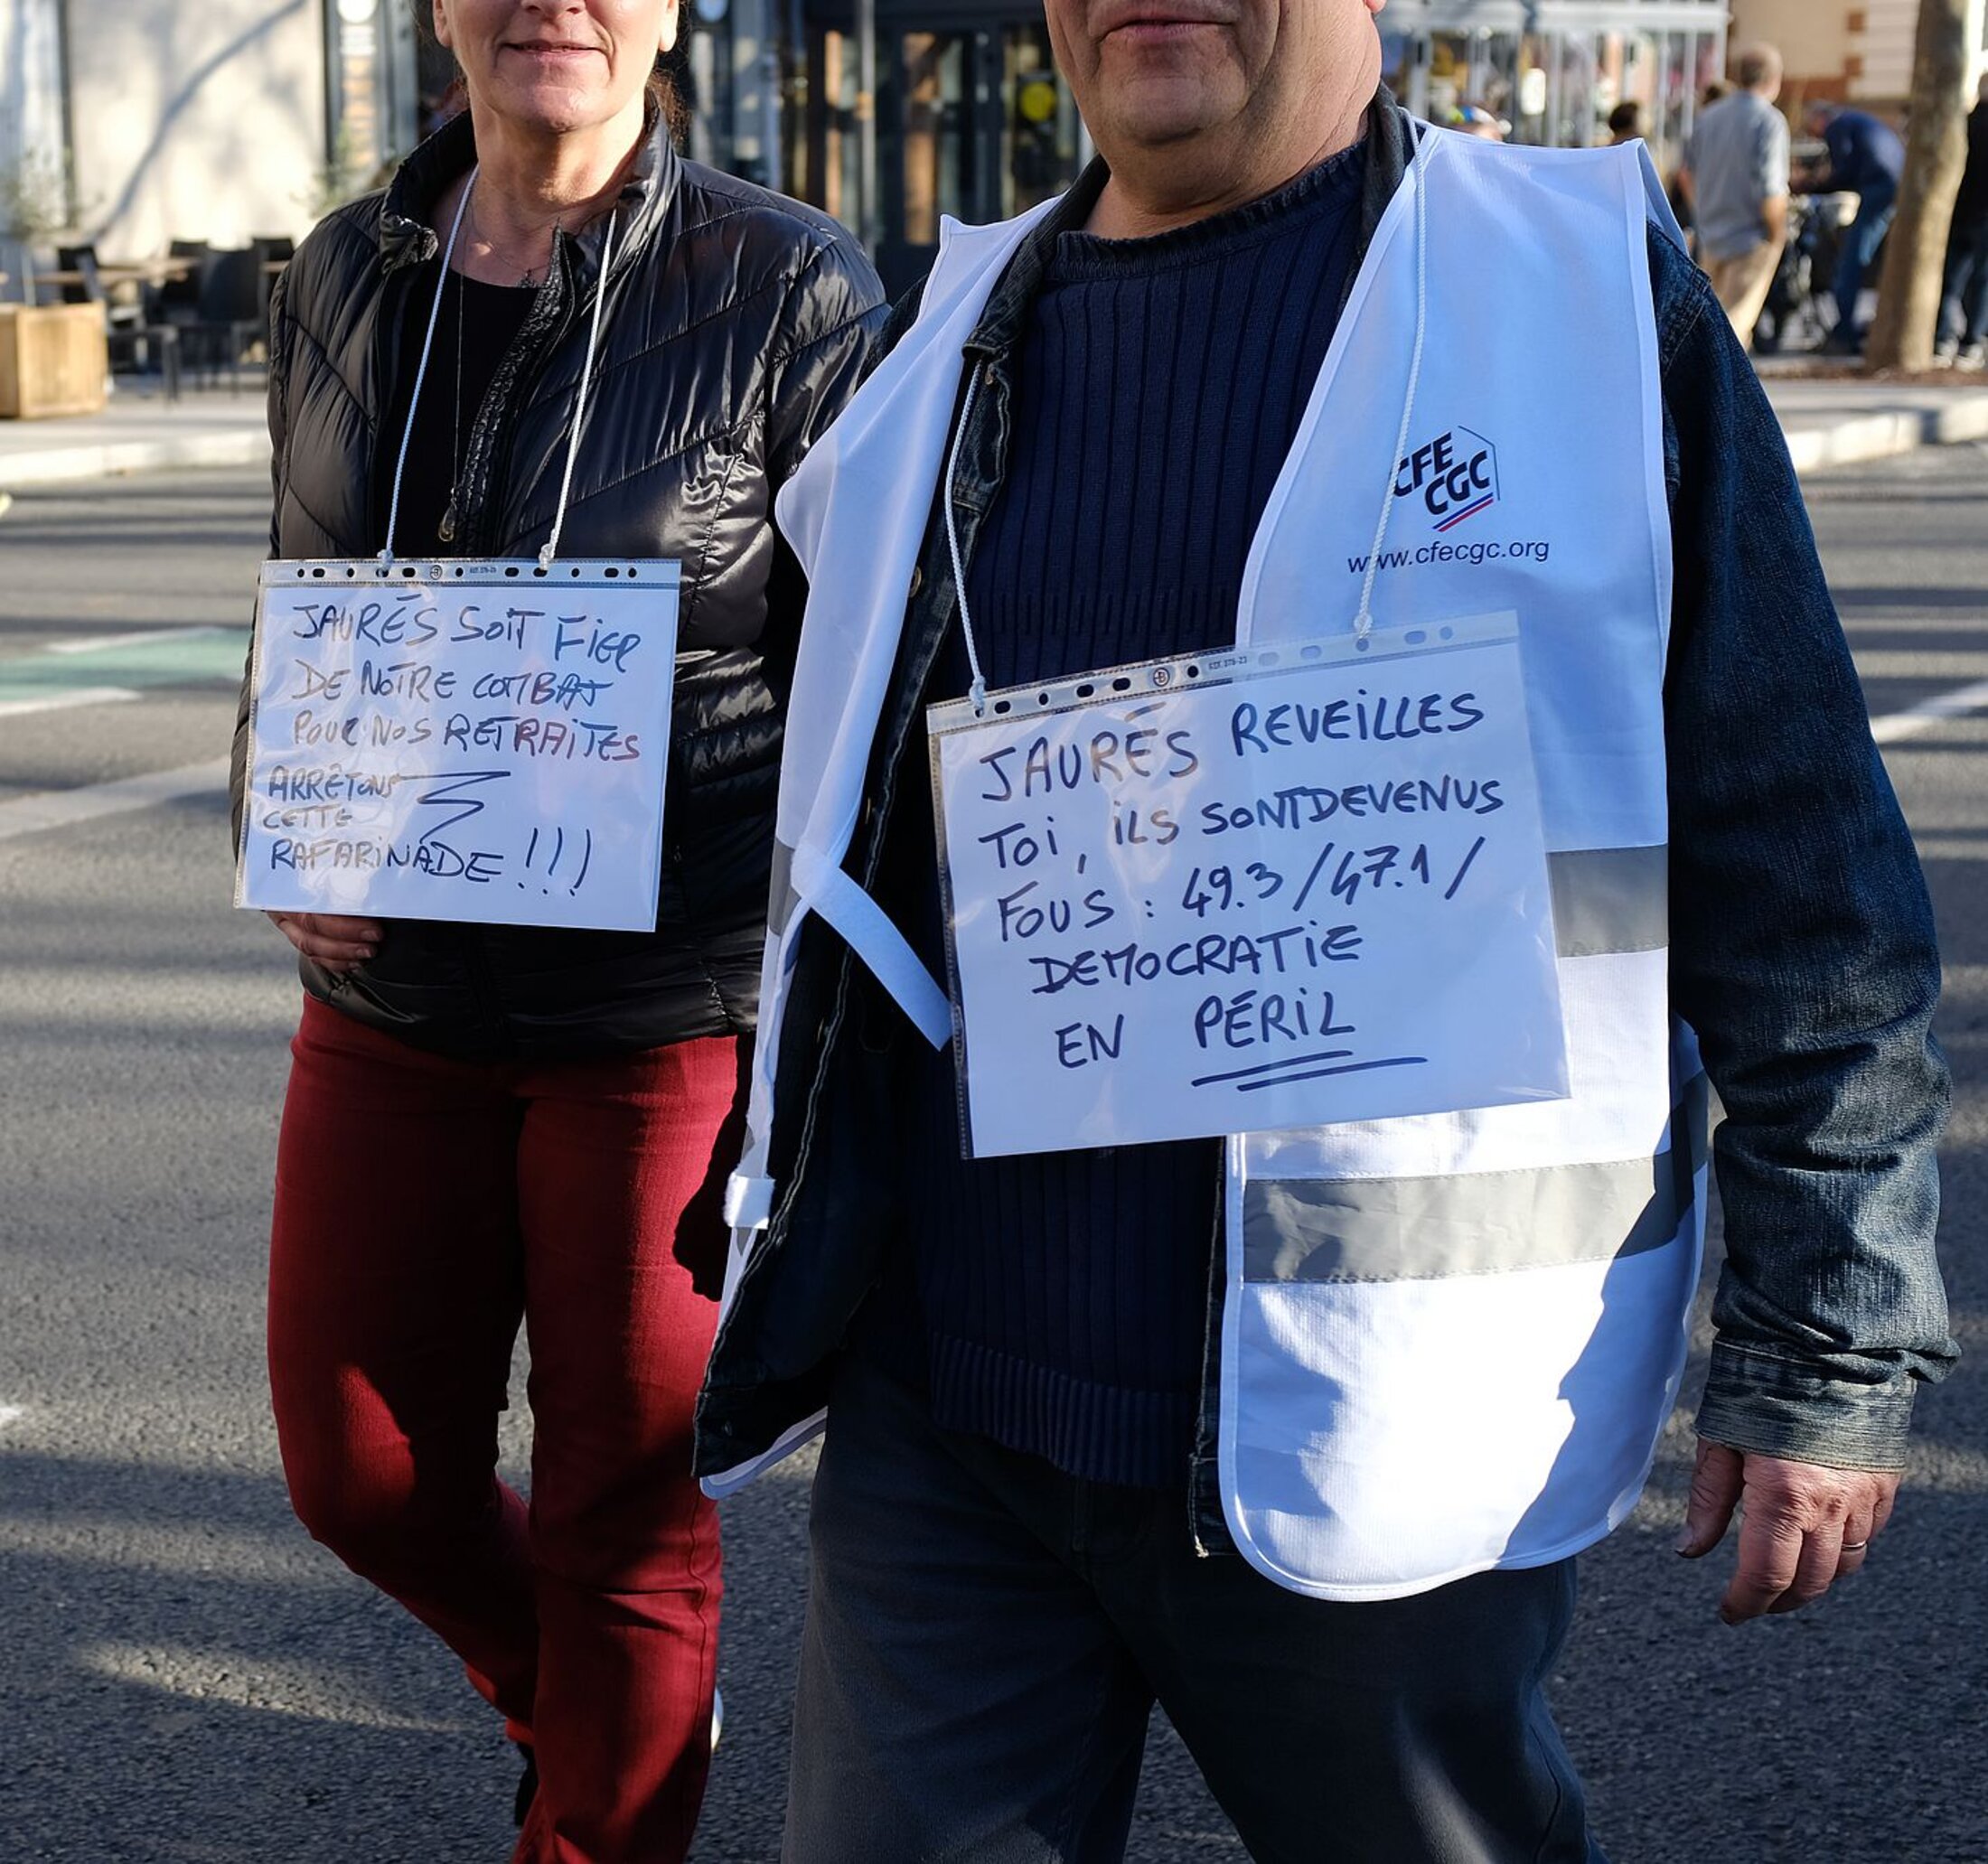 JAURÉS SOIT FIER
DE NOTRE COMBAT
POUR NOS RETRAITES
ARRÊTONS
CETTE
RAFARINADE !!!
CFE
CGC
www.cfecgc.org
JAURÉS REVEILLES
TOI, ILS SONT DEVENUS
FOUS : 49.3 / 47.1 /
DEMOCRATIE
EN PÉRIL